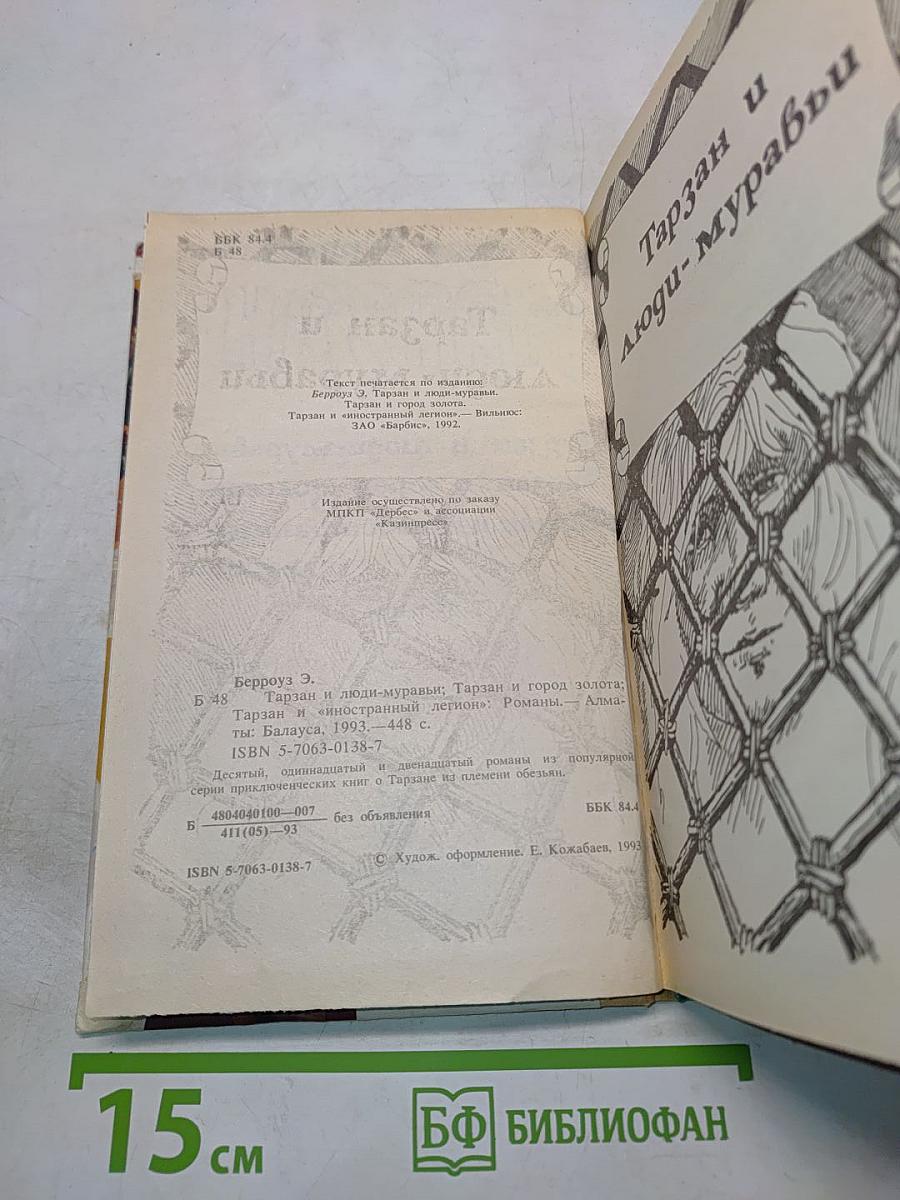 ББК 84.4
Б 48
Текст печатается по изданию:
Берроуз Э. Тарзан и люди-муравьи.
Тарзан и город золота.
Тарзан и «иностранный легион».— Вильнюс:
ЗАО «Барбис», 1992.
Издание осуществлено по заказу
МПКП «Дербес» и ассоциации
«Казинпресс»
Берроуз Э.
Б 48 Тарзан и люди-муравьи; Тарзан и город золота;
Тарзан и «иностранный легион»: Романы.— Алма-
ты: Балауса, 1993.—448 с.
ISBN 5-7063-0138-7
Десятый, одиннадцатый и двенадцатый романы из популярной
серии приключенческих книг о Тарзане из племени обезьян.
Б 4804040100—007 без объявления ББК 84.4
411(05)—93
ISBN 5-7063-0138-7 © Худож. оформление. Е. Кожабаев, 1993
Тарзан и
люди-муравьи
15 см
БФ БИБЛИОФАН